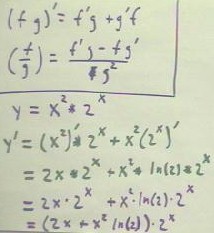 (f g)' = f'g + g'f
(f/g) = f'g - fg' / g²
y = x² * 2ˣ
y' = (x²)' * 2ˣ + x² (2ˣ)'
= 2x * 2ˣ + x² * ln(2) * 2ˣ
= 2x · 2ˣ + x² · ln(2) · 2ˣ
= (2x + x² ln(2)) · 2ˣ